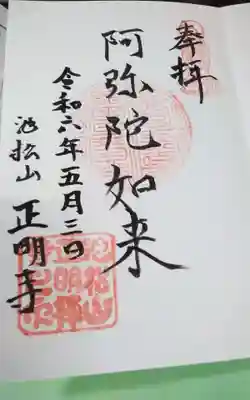 奉拝
阿弥陀如来
令和六年五月三日
池松山 正明寺